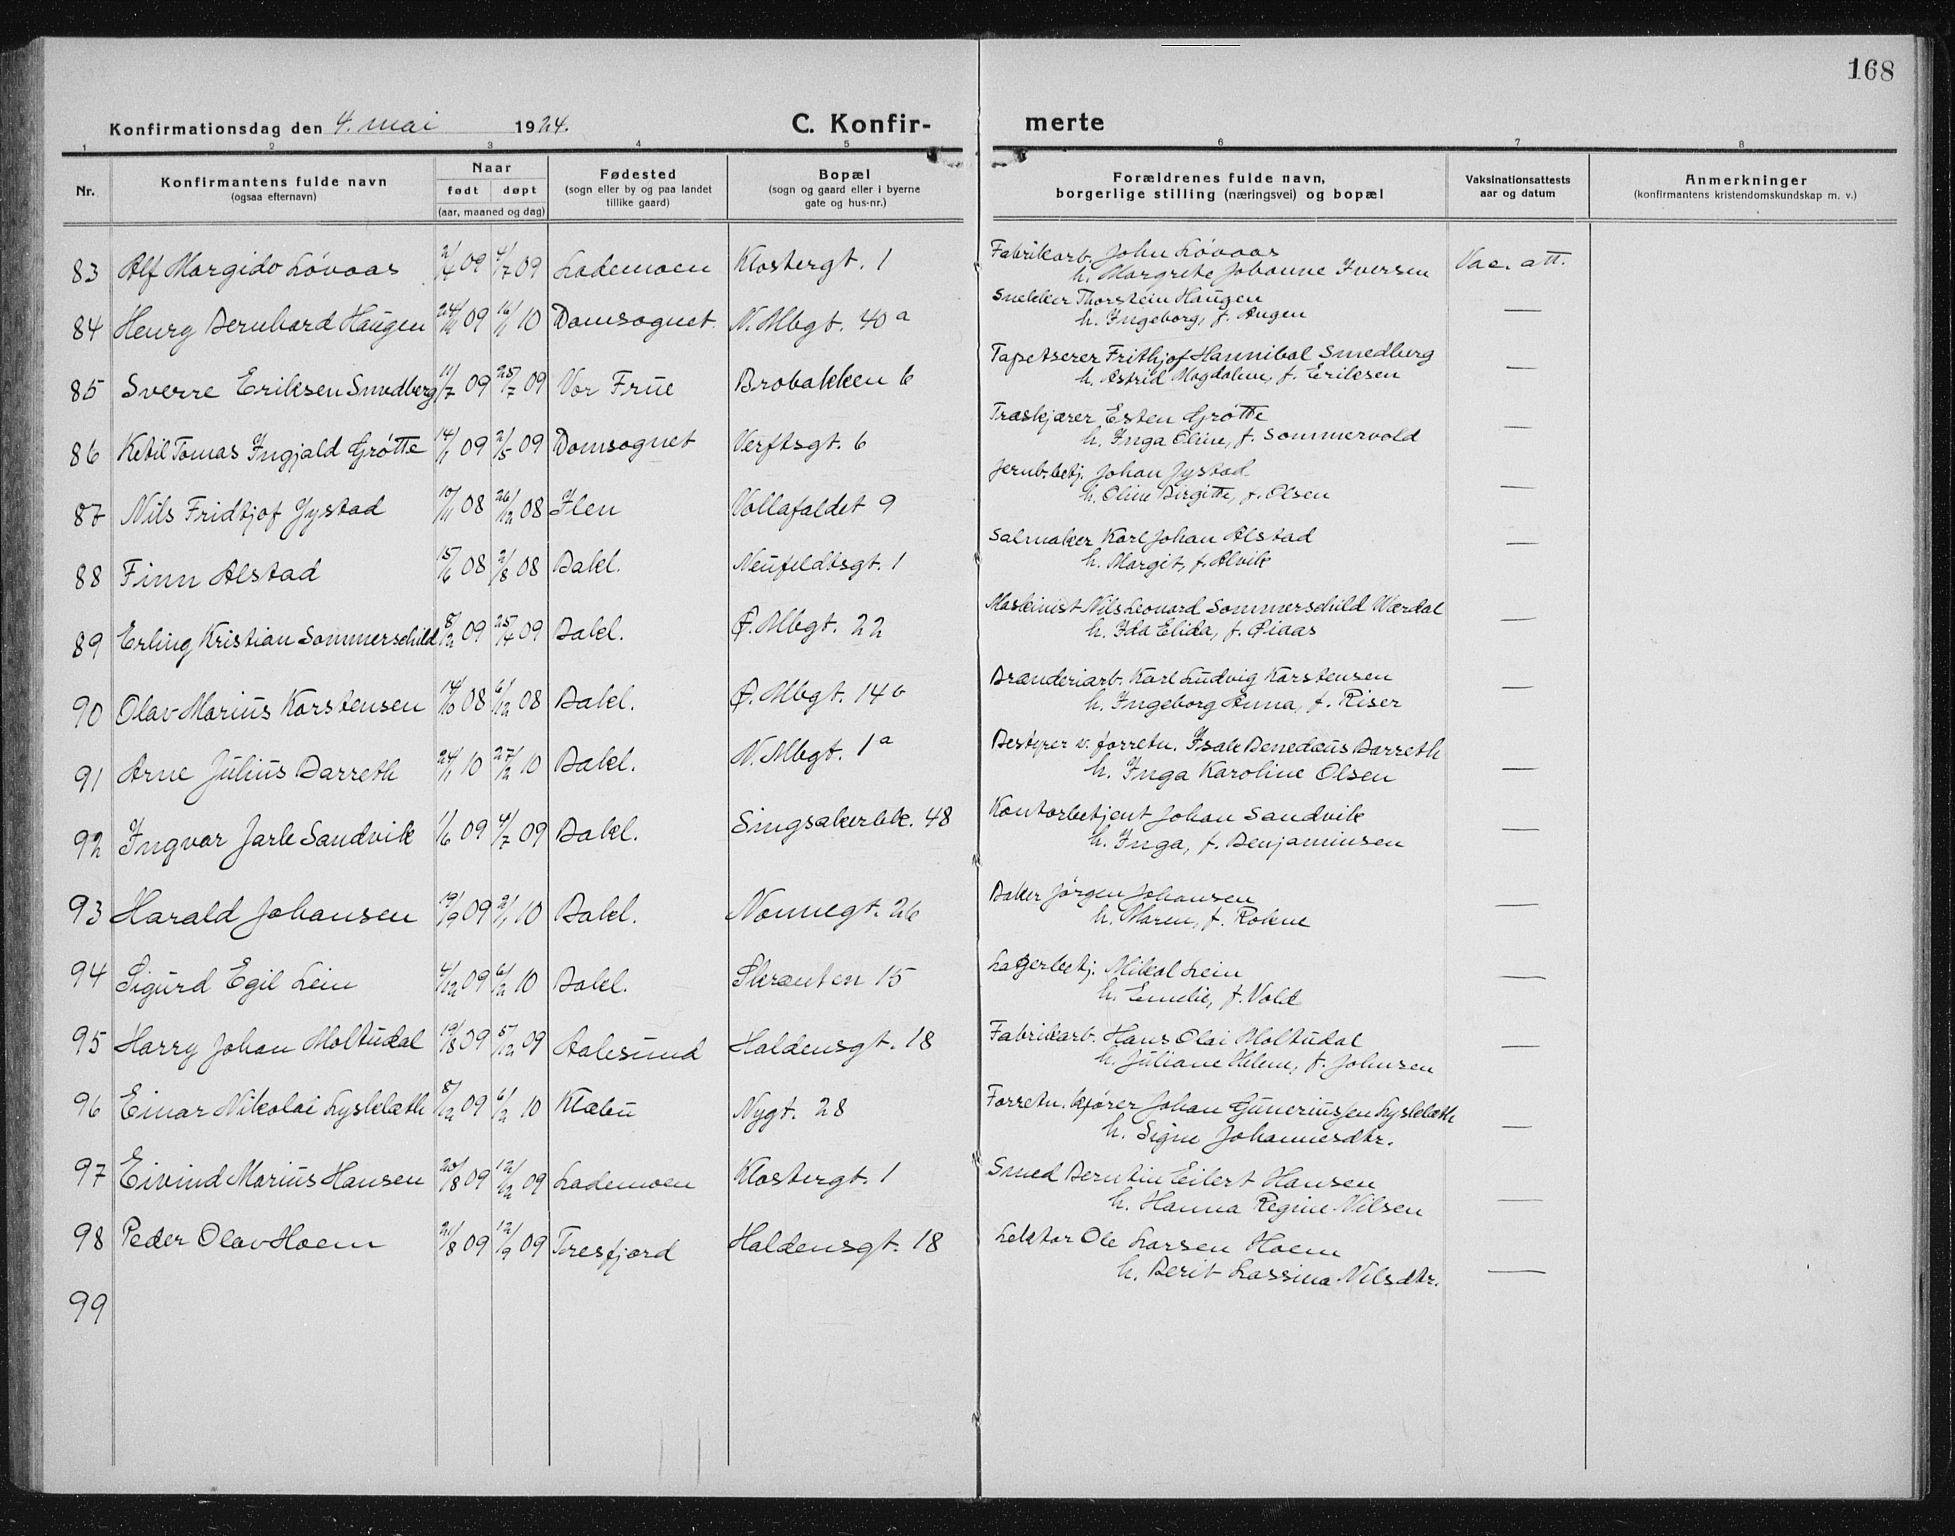 168
Konfirmationsdag den 4. mai 1924. C. Konfir- merte
1 2 3 4 5 6 7 8
Nr. Konfirmantens fulde navn (ogsaa efternavn) Naar født døpt (aar, maaned og dag) Fødested (sogn eller by og paa landet tillike gaard) Bopæl (sogn og gaard eller i byerne gate og hus-nr.) Forældrenes fulde navn, borgerlige stilling (næringsvei) og bopæl Vaksinationsattests aar og datum Anmerkninger (konfirmantens kristendomskundskap m. v.)
83 Alf Margido Løvaas 2/4 09 4/7 09 Lademoen Klostergt. 1 Fabrikarb. John Løvaas Vac. att.
h. Margrete Johanne Iversen
84 Henry Bernhard Haugen 24/11 09 16/1 10 Domsognet. N. Mbgt. 40 a Snekker Thorstein Haugen —
h. Ingeborg, f. Augen
85 Sverre Eriksen Smedberg 11/7 09 25/7 09 Vor Frue Brobakken 6 Tapetserer Frithjof Hannibal Smedberg —
h. Astrid Magdalene, f. Eriksen
86 Ketil Tomas Ingjald Grøtte 14/1 09 2/5 09 Domsognet Verftsgt. 6 Træskjærer Esten Grøtte —
h. Inga Oline, f. Sommervold
87 Nils Fridtjof Jystad 10/11 08 26/12 08 Ilen Vollafaldet 9 Jernb.betj. Johan Jystad —
h. Oline Birgitte, f. Olsen
88 Finn Alstad 15/6 08 2/8 08 Bakl. Neufeldtsgt. 1 Salmaker Karl Johan Alstad —
h. Margit, f. Alvik
89 Erling Kristian Sommerschild. 8/2 09 25/4 09 Bakl. Ø. Mbgt. 22 Maskinist Nils Leonard Sommerschild Wærdal —
h. Ida Elida, f. Øiaas
90 Olav Marius Karstensen 14/10 08 6/12 08 Bakl. Ø. Mbgt. 14 b Brænderiarb. Karl Ludvig Karstensen —
h. Ingeborg Anna, f. Riser
91 Arne Julius Barreth 24/1 10 27/2 10 Bakl. N. Mbgt. 1 a Bestyrer v. forretn. Isak Benedeus Barreth —
h. Inga Karoline Olsen
92 Ingvar Jarle Sandvik 1/6 09 4/7 09 Bakl. Singsakerbk. 48 Kontorbetjent Johan Sandvik —
h. Inga, f. Benjaminsen
93 Harald Johansen 19/9 09 2/1 10 Bakl. Nonnegt. 26 Baker Jørgen Johansen —
h. Maren, f. Rokne
94 Sigurd Egil Lein 4/12 09 6/2 10 Bakl. Skrænten 15 Lagerbetj. Mikal Lein —
h. Emelie, f. Vold
95 Harry Johan Moltudal 19/8 09 5/12 09 Aalesund Haldensgt. 18 Fabrikarb. Hans Olai Moltudal —
h. Juliane Helene, f. Johnsen
96 Einar Nikolai Lysklæth 8/12 09 6/2 10 Klæbu Nygt. 28 Forretn. kjører Johan Guneriussen Lysklæth —
h. Signe Johannesdtr.
97 Eivind Marius Hansen 20/8 09 12/12 09 Lademoen Klostergt. 1 Smed Berntin Eilert Hansen —
h. Hanna Regine Nilsen
98 Peder Olav Hoem 21/8 09 12/9 09 Tresfjord Haldensgt. 18 Lektor Ole Larsen Hoem —
h. Berit Lassina Nilsdtr.
99